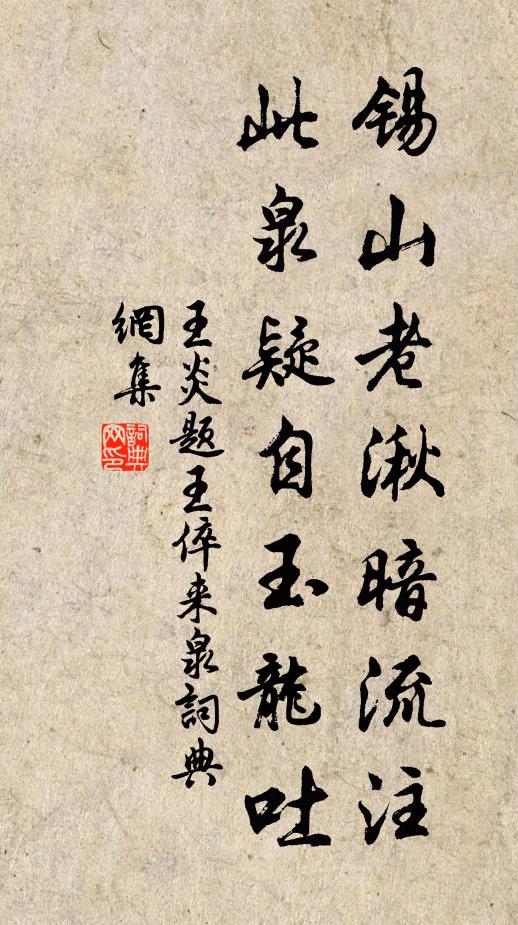 錫山老湫暗流注
此泉疑自玉龍吐
王炎題王倅来泉詞典
網集
詞典
网印